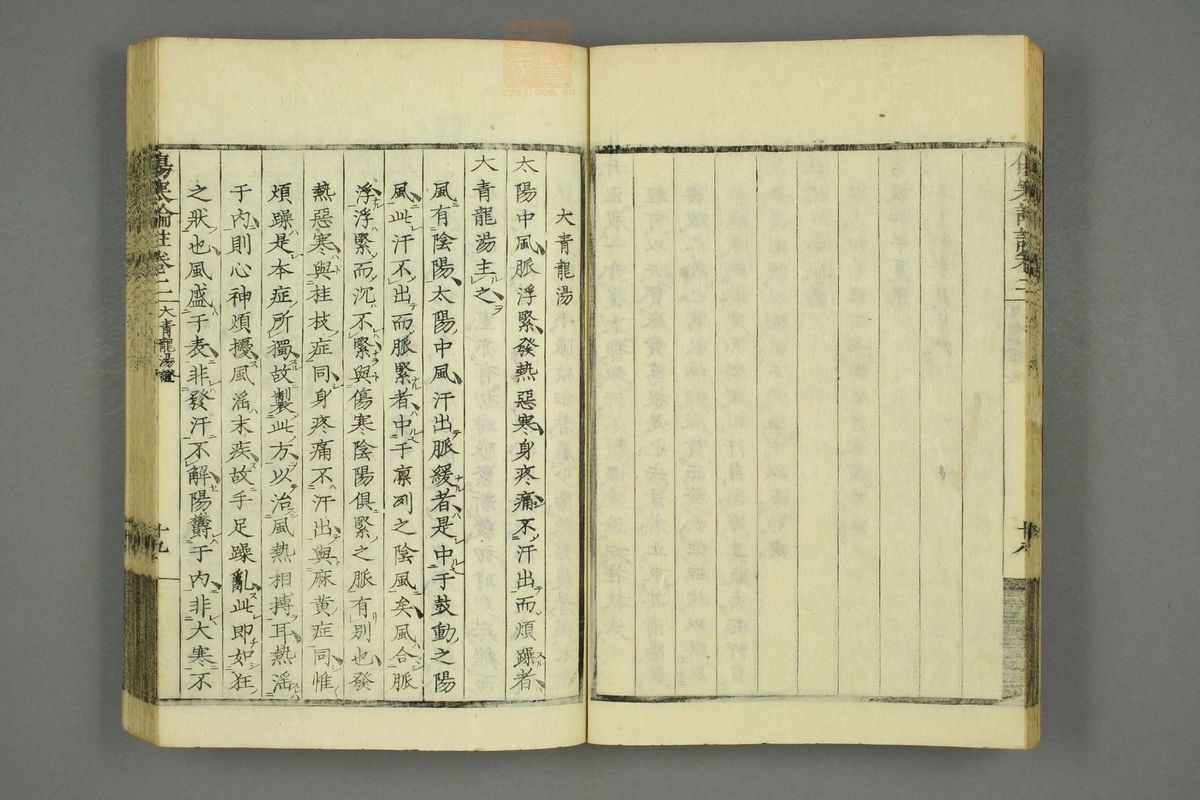 大青龍湯
太陽中風脈浮緊發熱惡寒身疼痛不汗出而煩躁者
大青龍湯主之
風有陰陽太陽中風汗出脈緩者是中于鼓動之陽
風此汗不出而脈緊者中于凛冽之陰風矣風合脈
浮浮緊而沉不緊與傷寒陰陽俱緊之脈有別也發
熱惡寒與桂枝症同身疼痛不汗出與麻黄症同惟
煩躁是本症所獨故製此方以治風熱相搏耳熱淫
于内則心神煩擾風淫末疾故手足躁亂此即如狂
之狀也風盛于表非發汗不解陽鬱于内非大寒不
傷寒論註卷二 大青龍湯證 十九
十八
zysj.com.cn